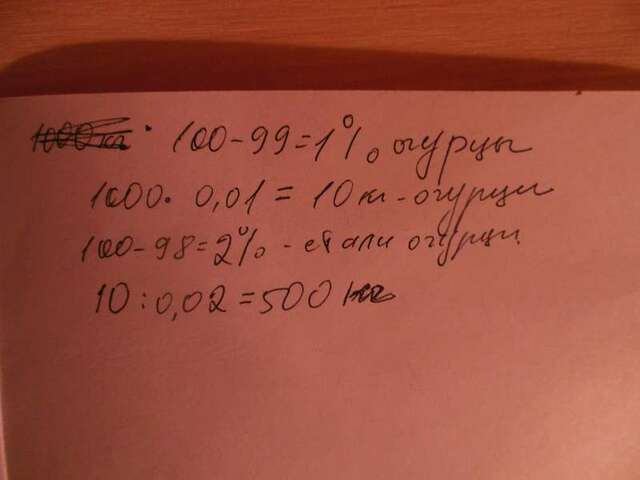 100-99=1% огурцы
1000 · 0,01 = 10 кг - огурцы
100-98=2% - стали огурцы
10 : 0,02 = 500 кг